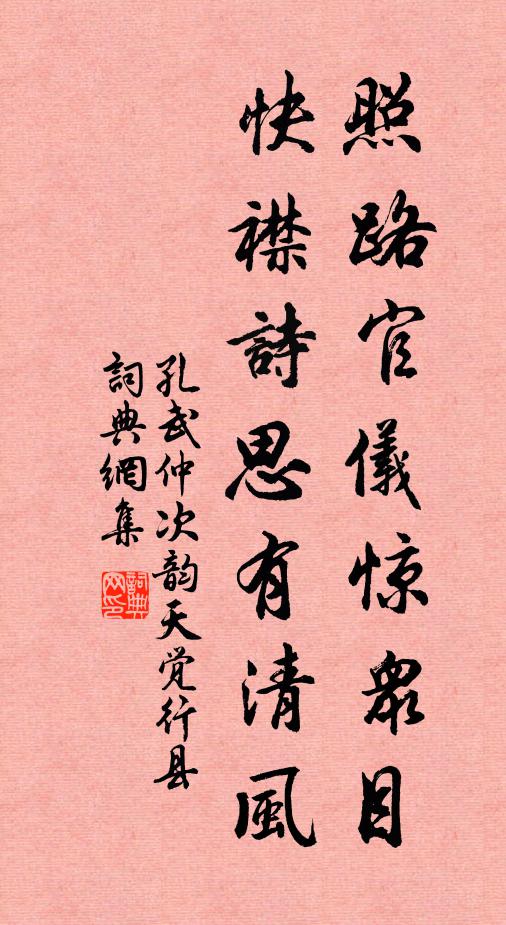 照路官儀惊衆目
快襟詩思有清風
孔武仲次韵天覚行县
詞典網集
詞典网印